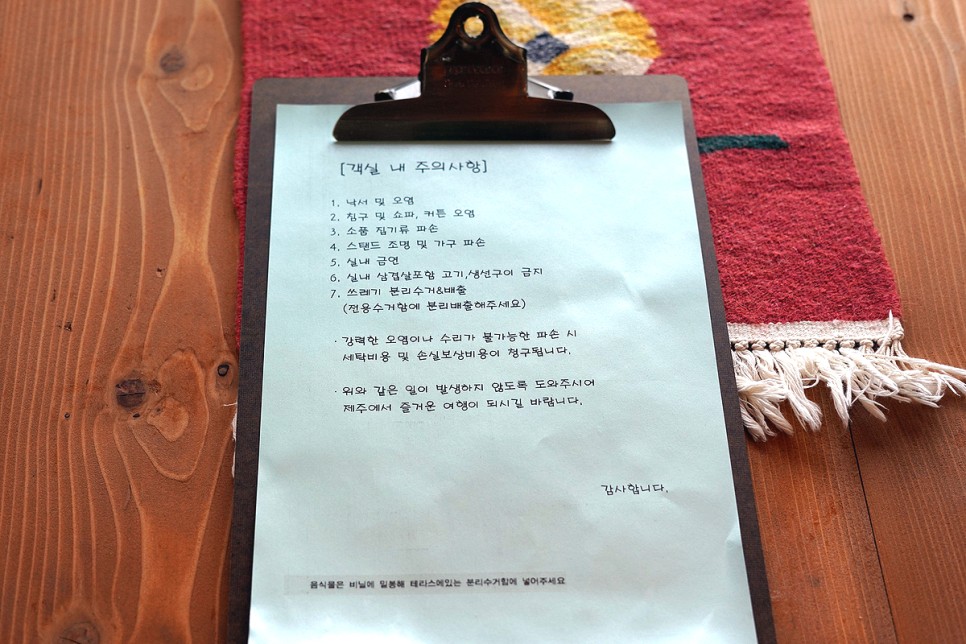 [객실 내 주의사항]
1. 낙서 및 오염
2. 침구 및 쇼파, 커튼 오염
3. 소품 집기류 파손
4. 스탠드 조명 및 가구 파손
5. 실내 금연
6. 실내 삼겹살포함 고기,생선구이 금지
7. 쓰레기 분리수거&배출
(전용수거함에 분리배출해주세요)
· 강력한 오염이나 수리가 불가능한 파손 시
세탁비용 및 손실보상비용이 청구됩니다.
· 위와 같은 일이 발생하지 않도록 도와주시어
제주에서 즐거운 여행이 되시길 바랍니다.
감사합니다.
음식물은 비닐에 밀봉해 테라스에있는 분리수거함에 넣어주세요